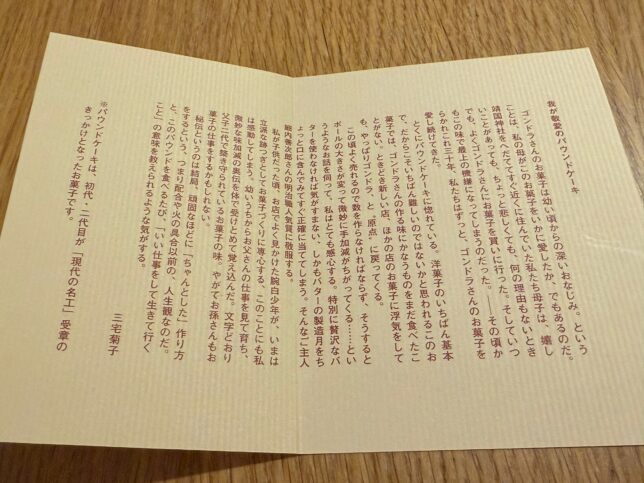 我が敬愛のパウンドケーキ
ゴンドラさんのお菓子は幼い頃からの深いおなじみ。という
ことは、私の母がこのお菓子をいかに愛したか、でもあるのだ。
靖国神社をへだててすぐ近くに住んでいた私たち母子は、嬉し
いことがあっても、ちょっと悲しくても、何の理由もないとき
でも、よくゴンドラさんにお菓子を買いに行った。そしていつ
もこの味で最上の機嫌になってしまうのだった。――その頃か
らかれこれ三十年、私たちはずっと、ゴンドラさんのお菓子を
愛し続けてきた。
とくにパウンドケーキに惚れている。洋菓子のいちばん基本
で、だからこそいちばん難しいのではないかと思われるこのお
菓子では、ゴンドラさんの作る味にかなうものをまだ食べたこ
とがない。ときどき新しい店、ほかの店のお菓子に浮気をして
も、やっぱりゴンドラ、と〝原点〟に戻ってくる。
この頃よく売れるので数を作らなければならず、そうすると
ボールの大きさが変って微妙に手加減がちがってくる……とい
うようなお話を伺って、私はとても感心する。特別に贅沢なバ
ターを使わなければ気がすまない、しかもバターの製造月をち
ょっと口に含んでみてすぐ正確に当ててしまう。そんなご主人
細内善次郎さんの明治職人気質に敬服する。
私が子供だった頃、お店でよく見かけた腕白少年が、いまは
立派な跡つぎとしてお菓子づくりに専心する、このことにも私
は感動してしまう。幼いうちからお父さんの仕事を見て育ち、
微妙な味加減の奥伝を体で受けとめて覚え込んだ。文字どおり
父子二代で築き守られているお菓子の味。やがてお孫さんもお
菓子の仕事をするかもしれない。
秘伝というのは結局、頑固なほどに「ちゃんとした」作り方
をするという、つまり配合や火の具合以前の、人生観なのだ。
と、このパウンドを食べるたび、「いい仕事をして生きて行く
こと」の意味を教えられるような気がする。
三宅菊子
※パウンドケーキは、初代、二代目が「現代の名工」受章の
きっかけとなったお菓子です。